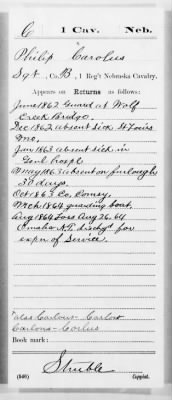 C | 1 Cav. | Neb.
Philip Carolus
Sgt, Co. B, 1 Reg't Nebraska Cavalry.
Appears on Returns as follows:
June 1862 Guard at Wolf
Creek Bridge.
Dec 1862 absent sick St Louis
Mo,
Jan 1863 absent sick in
Genl hospl
May 1863 absent on furlough
30 days,
Oct 1863 Co, Comsy,
Mch 1864 guarding boat,
Aug 1864 Loss Aug 26, 64
Omaha N.T. dischgd for
expn of Service.
"also Carlous - Carlow
Carlons - Corlus
Book mark:
Struble
(546) Copyist.